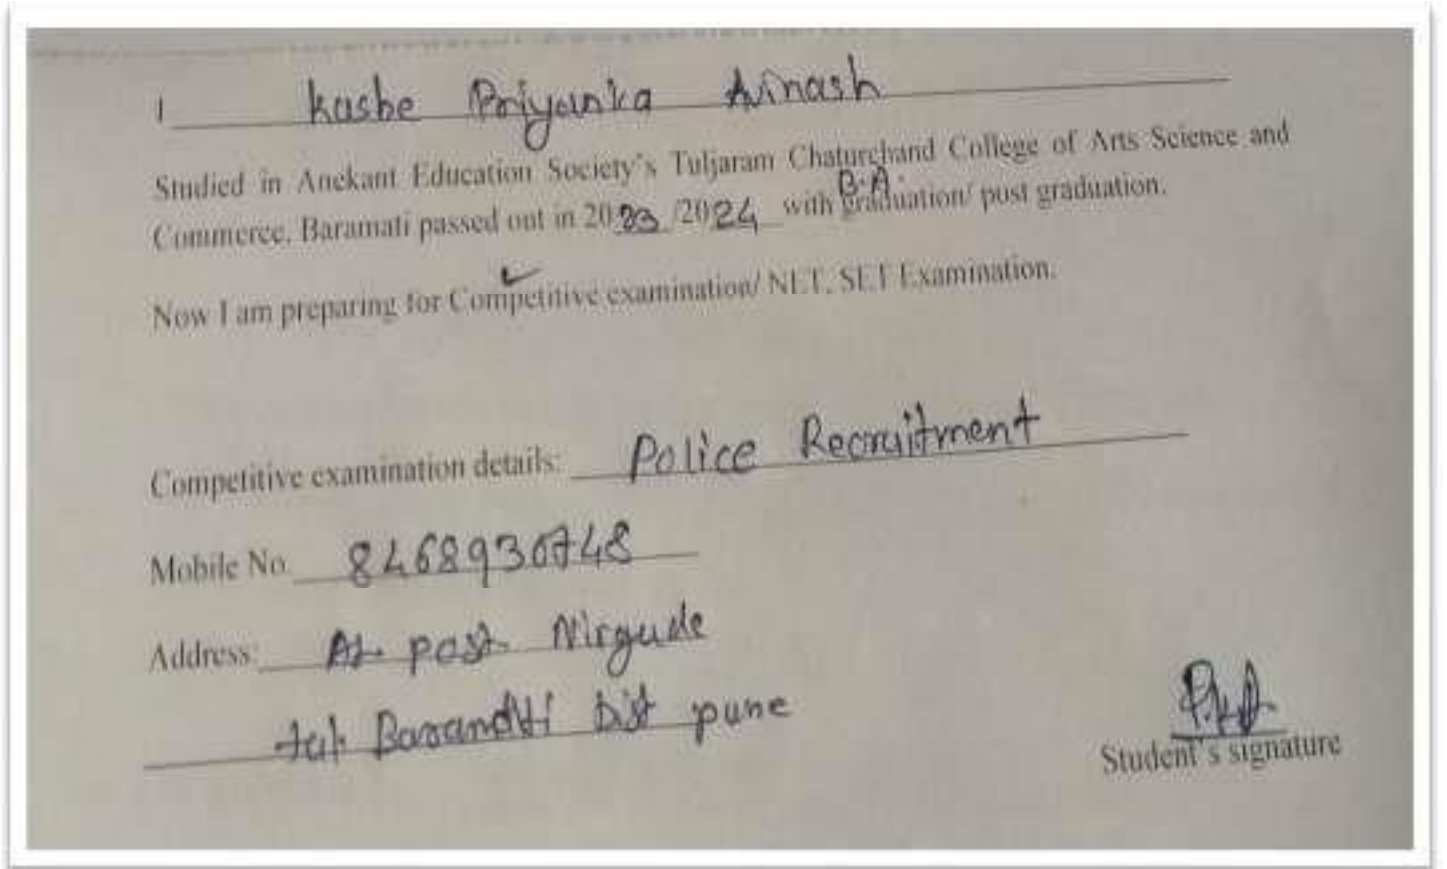 I Kashe Priyanka Avinash
Studied in Anekant Education Society's Tuljaram Chaturchand College of Arts Science and
B.A.
Commerce, Baramati passed out in 2023 /2024 with graduation/ post graduation.
Now I am preparing for Competitive examination/ NET, SET Examination.
Competitive examination details: Police Recruitment
Mobile No. 8468930748
Address: At post Nirgude
tal. Dist pune
Student's signature